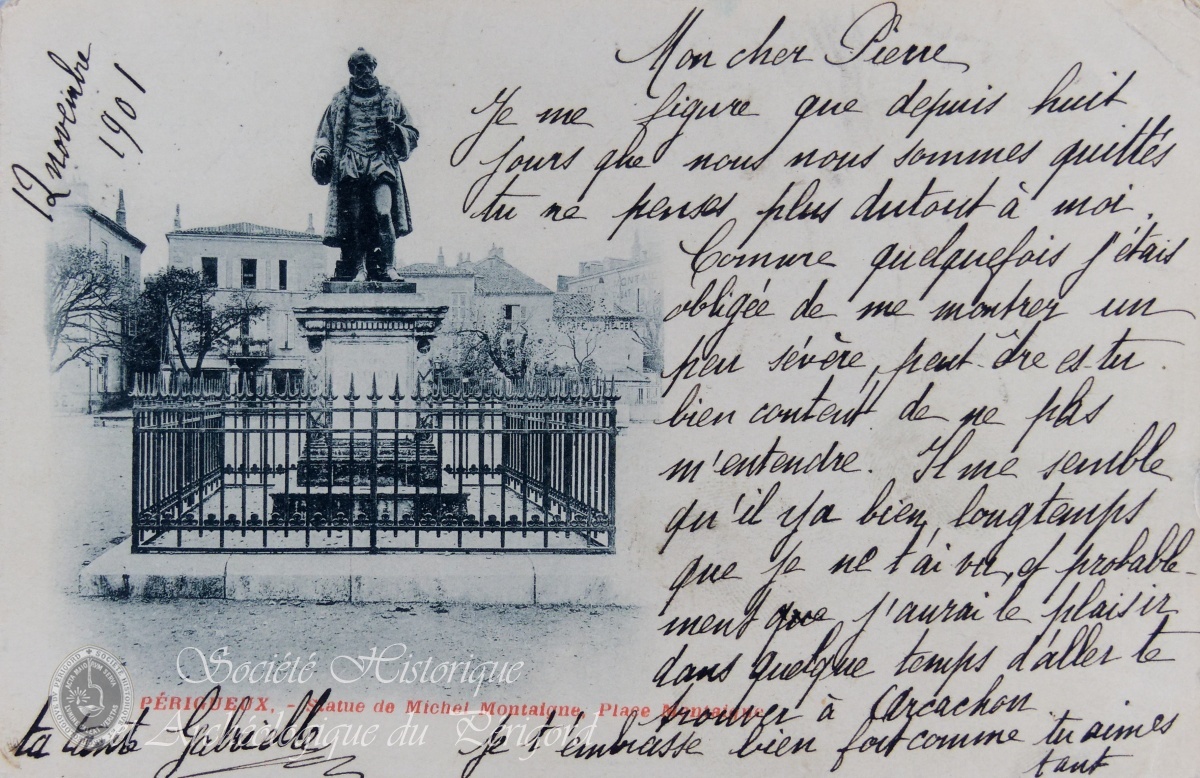 12 novembre
1901
Mon cher Pierre
Je me figure que depuis huit
jours que nous nous sommes quittés
tu ne penses plus dutout à moi.
Comme quelquefois j'étais
obligée de me montrer un
peu sévère, peut-être es-tu
bien content de ne plus
m'entendre. Il me semble
qu'il y a bien longtemps
que je ne t'ai vu, et probable-
ment que j'aurai le plaisir
dans quelque temps d'aller te
trouver à Arcachon
Je t'embrasse bien fort comme tu aimes
tant
ta tante Gabrielle
PÉRIGUEUX. - Statue de Michel Montaigne, Place Montaigne
Société Historique
et Archéologique du Périgord